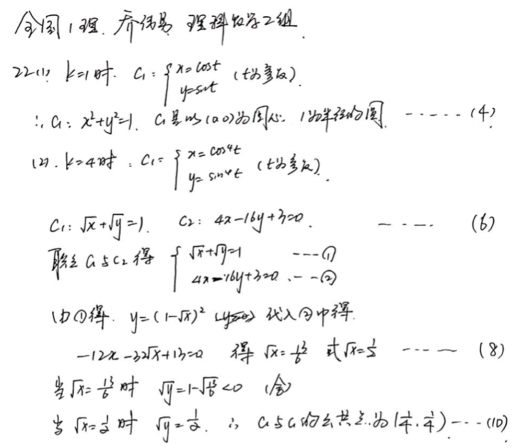 全国1理. 乔伟易 理科数学2组.
22(1) k=1时. C₁: { x=cost y=sint (t为参数).
∴ C₁: x²+y²=1. C₁是以(0,0)为圆心. 1为半径的圆. ----- (4)
(2). k=4时. C₁= { x=cos⁴t y=sin⁴t (t为参数).
C₁: √x+√y=1. C₂: 4x-16y+3=0. ---- (6)
联立C₁与C₂得 { √x+√y=1 ---① 4x-16y+3=0 ---②
由①得. y=(1-√x)² 代入②中得.
-12x-32√x+13=0 得 √x=13/6 或√x=1/2 ---- (8)
当√x=13/6时 √y=1-√13/6<0 (舍)
当√x=1/2时 √y=1/2. ∴ C₁与C₂的公共点为(1/4, 1/4) --- (10)